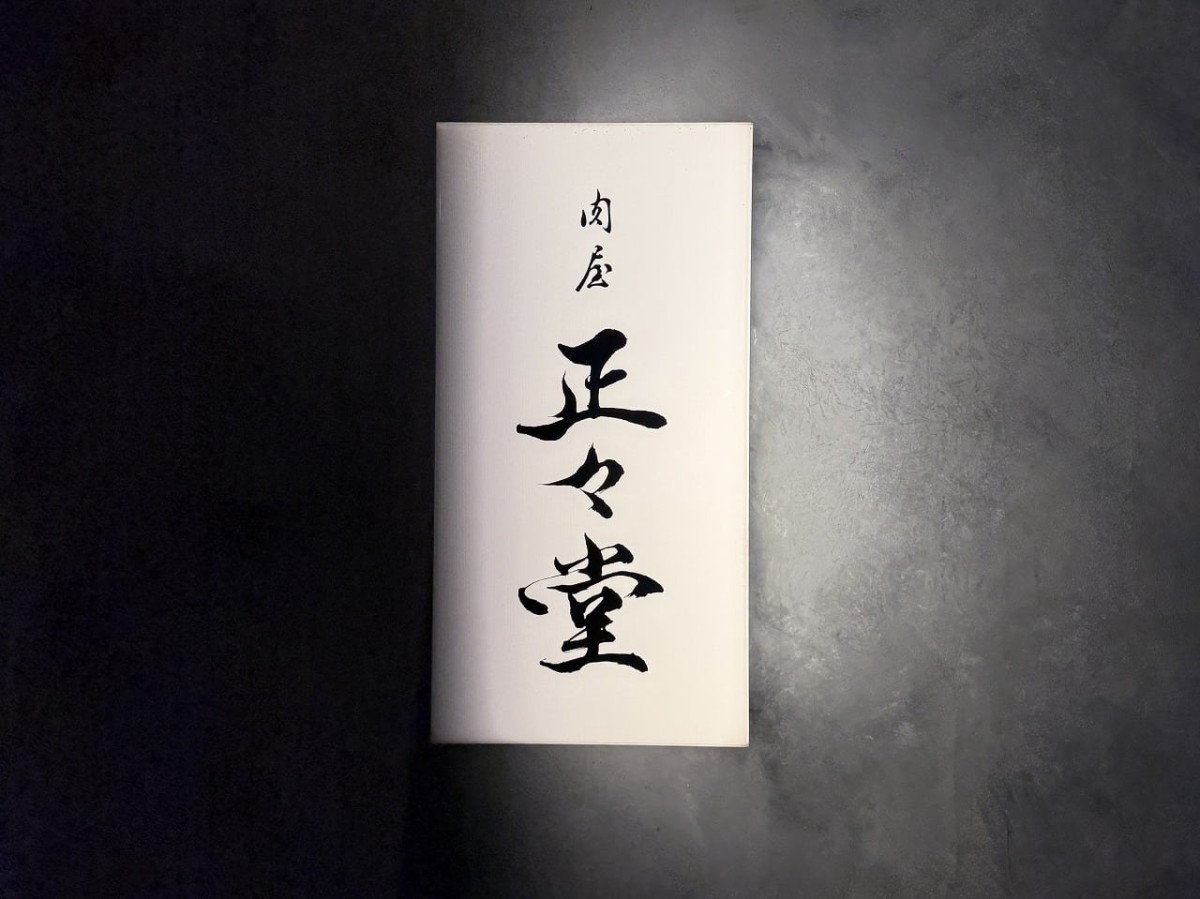 肉屋
正々堂